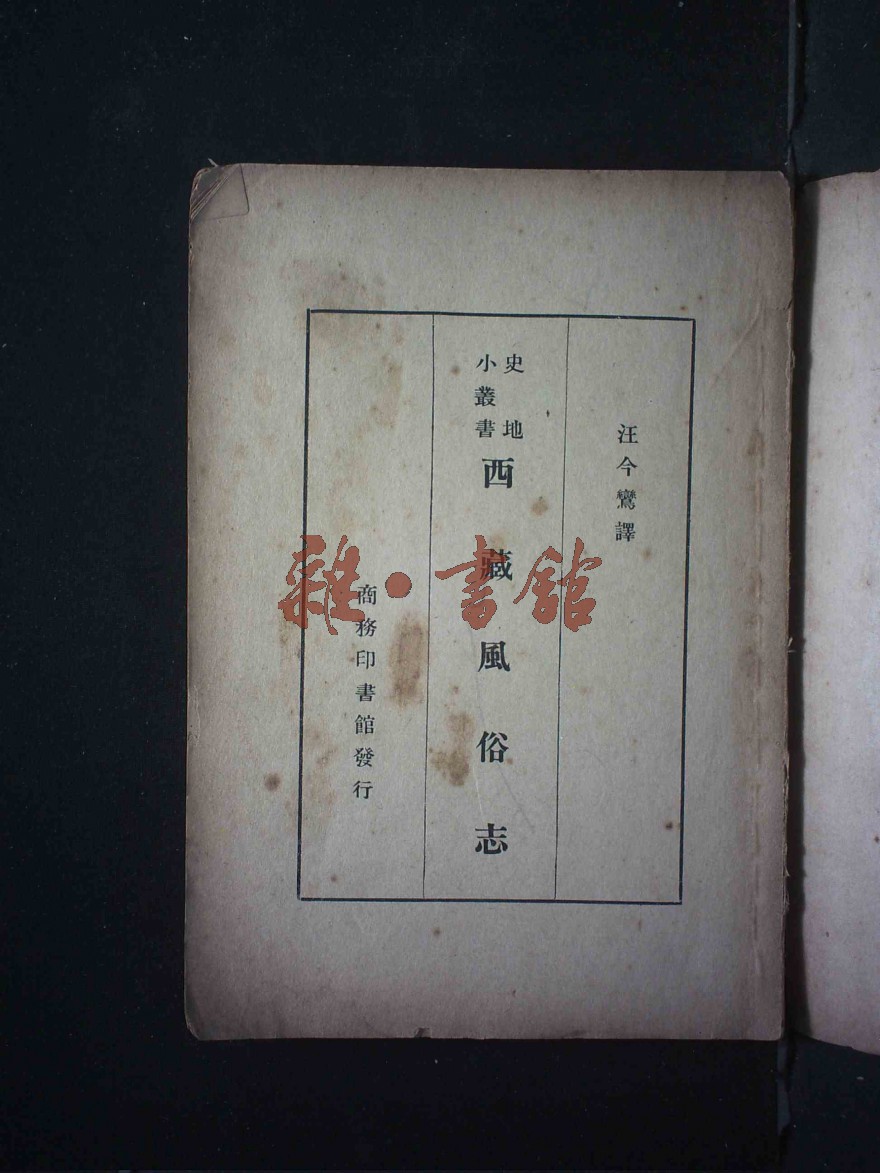 汪今鸞譯
史地
小叢書
西藏風俗志
商務印書館發行
雜·書館